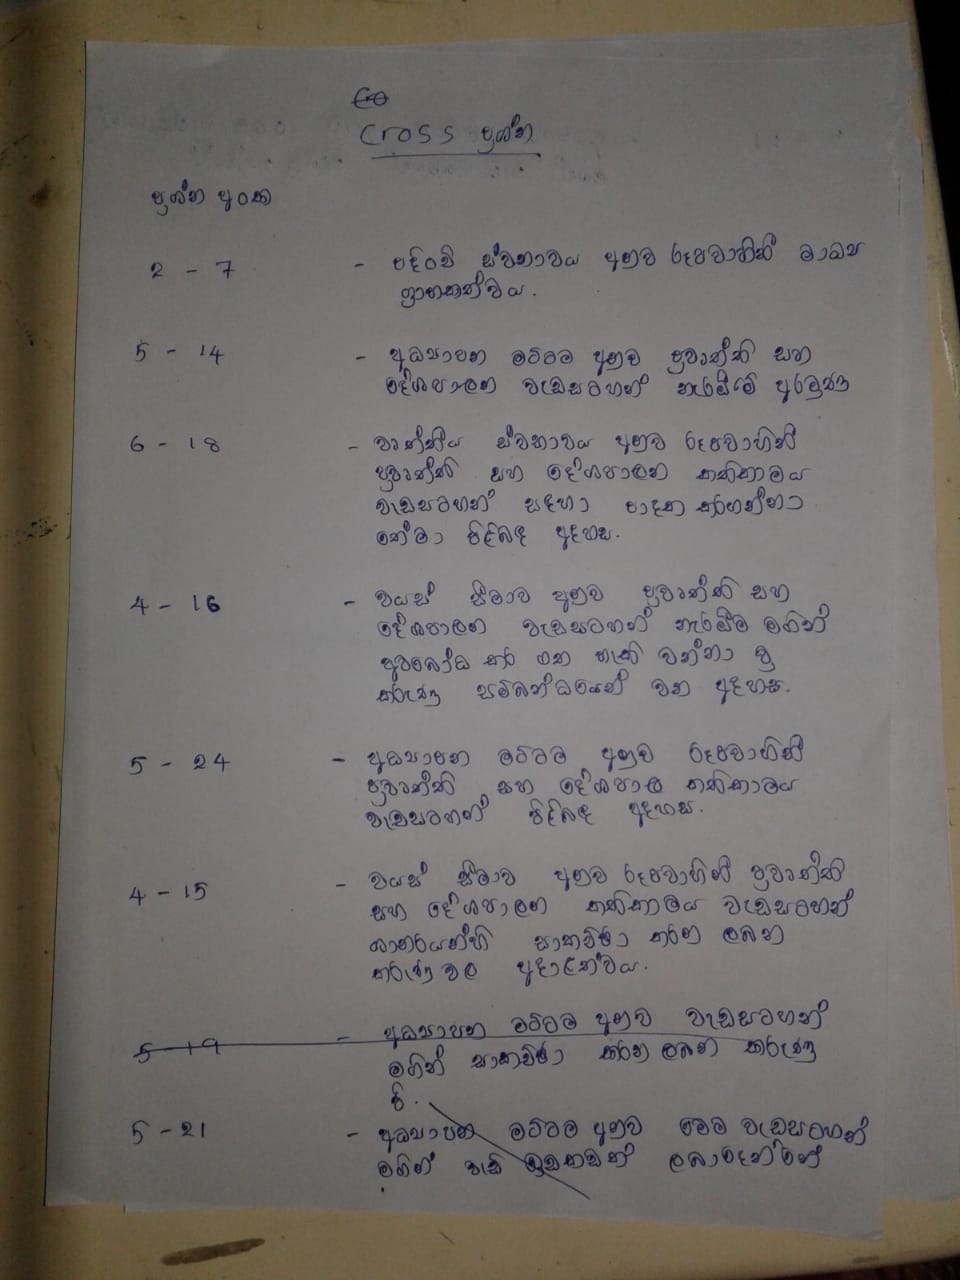 Cross ප්‍රශ්න
ප්‍රශ්න අංක
2 - 7 - පදිංචි ස්වභාවය අනුව රූපවාහිනී මාධ්‍ය
ග්‍රාහකත්වය.
5 - 14 - අධ්‍යාපන මට්ටම අනුව ප්‍රවෘත්ති සහ
දේශපාලන වැඩසටහන් නැරඹීමේ අරමුණ
6 - 18 - වෘත්තීය ස්වභාවය අනුව රූපවාහිනී
ප්‍රවෘත්ති සහ දේශපාලන කතිකාමය
වැඩසටහන් සඳහා පාදක කරගන්නා
තේමා පිළිබඳ අදහස.
4 - 16 - වයස් සීමාව අනුව ප්‍රවෘත්ති සහ
දේශපාලන වැඩසටහන් නැරඹීම මගින්
අවබෝධ කර ගත හැකි වන්නා වූ
කරුණු සම්බන්ධයෙන් වන අදහස.
5 - 24 - අධ්‍යාපන මට්ටම අනුව රූපවාහිනී
ප්‍රවෘත්ති සහ දේශපාල කතිකාමය
වැඩසටහන් පිළිබඳ අදහස.
4 - 15 - වයස් සීමාව අනුව රූපවාහිනී ප්‍රවෘත්ති
සහ දේශපාලන කතිකාමය වැඩසටහන්
සාකච්ඡා කරන ලබන
කරුණු වල අදාළත්වය.
5 - 19 - අධ්‍යාපන මට්ටම අනුව වැඩසටහන්
මගින් සාකච්ඡා කරන ලබන කරුණු
පි.
5 - 21 - අධ්‍යාපන මට්ටම අනුව මෙම වැඩසටහන්
මගින් වැඩි ඉඩකඩක් ලබාදෙන්නේ